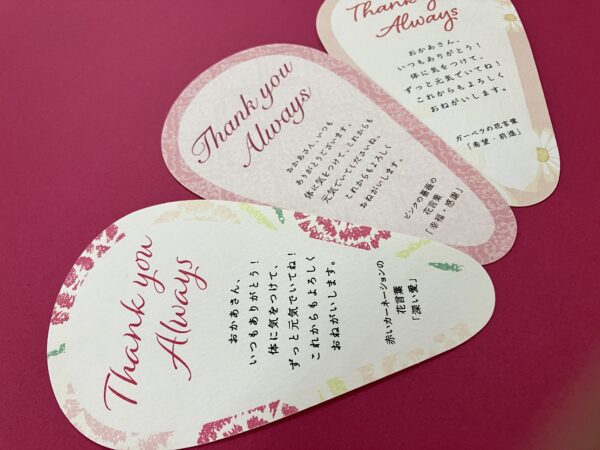 Thank you
Always
おかあさん、
いつもありがとう!
体に気をつけて、
ずっと元気でいてね!
これからもよろしく
おねがいします。
ガーベラの花言葉
「希望・前進」
Thank you
Always
おかあさん、いつも
ありがとうございます。
体に気をつけて、これからも
元気でいてくださいね。
これからもよろしく
おねがいします。
ピンクの薔薇の
花言葉
「幸福・感謝」
Thank you
Always
おかあさん、
いつもありがとう!
体に気をつけて、
ずっと元気でいてね!
これからもよろしく
おねがいします。
赤いカーネーションの
花言葉
「深い愛」